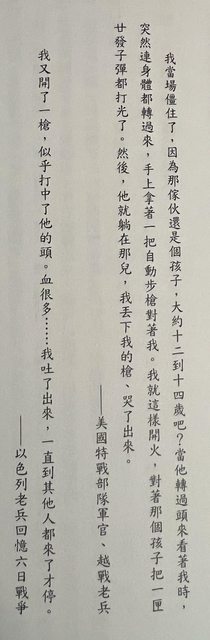 我當場僵住了，因為那傢伙還是個孩子，大約十二到十四歲吧？當他轉過頭來看著我時，
突然連身體都轉過來，手上拿著一把自動步槍對著我。我就這樣開火，對著那個孩子把一匣
廿發子彈都打光了。然後，他就躺在那兒，我丟下我的槍、哭了出來。
——美國特戰部隊軍官、越戰老兵
我又開了一槍，似乎打中了他的頭。血很多……我吐了出來，一直到其他人都來了才停。
——以色列老兵回憶六日戰爭